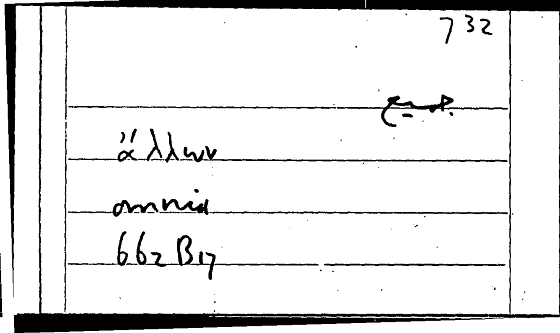 732
ἄλλων
omnia
662 B17